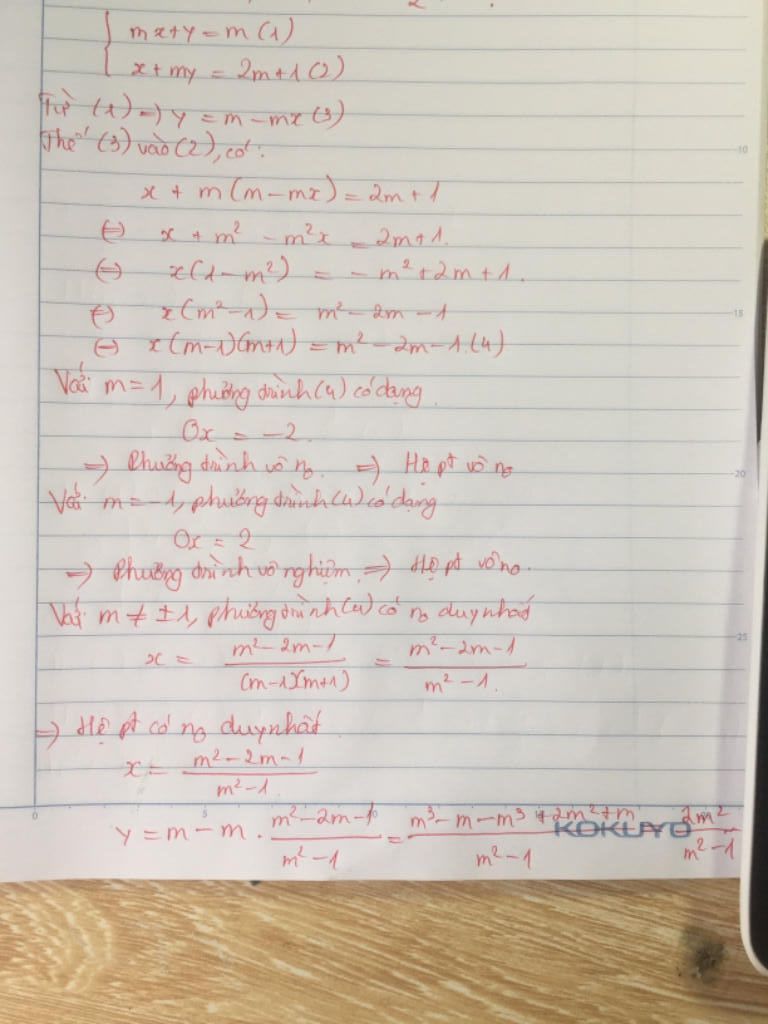 { mx + y = m (1)
x + my = 2m + 1 (2)
Từ (1) => y = m - mx (3)
Thế (3) vào (2), có:
x + m (m - mx) = 2m + 1
<=> x + m² - m²x = 2m + 1.
<=> x(1 - m²) = - m² + 2m + 1.
<=> x(m² - 1) = m² - 2m - 1
<=> x(m-1)(m+1) = m² - 2m - 1. (4)
Với m = 1, phương trình (4) có dạng
0x = -2.
=> Phương trình vô no. => Hệ pt vô no
Với m = -1, phương trình (4) có dạng
0x = 2
=> Phương trình vô nghiệm. => Hệ pt vô no.
Với m ≠ ±1, phương trình (4) có no duy nhất
x = (m² - 2m - 1)/((m-1)(m+1)) = (m² - 2m - 1)/(m² - 1).
=> Hệ pt có no duy nhất
x = (m² - 2m - 1)/(m² - 1)
0 5 10 15 20 25
y = m - m . (m² - 2m - 1)/(m² - 1) = (m³ - m - m³ + 2m² + m)/(m² - 1) 2m²/(m² - 1)
KOKUYO